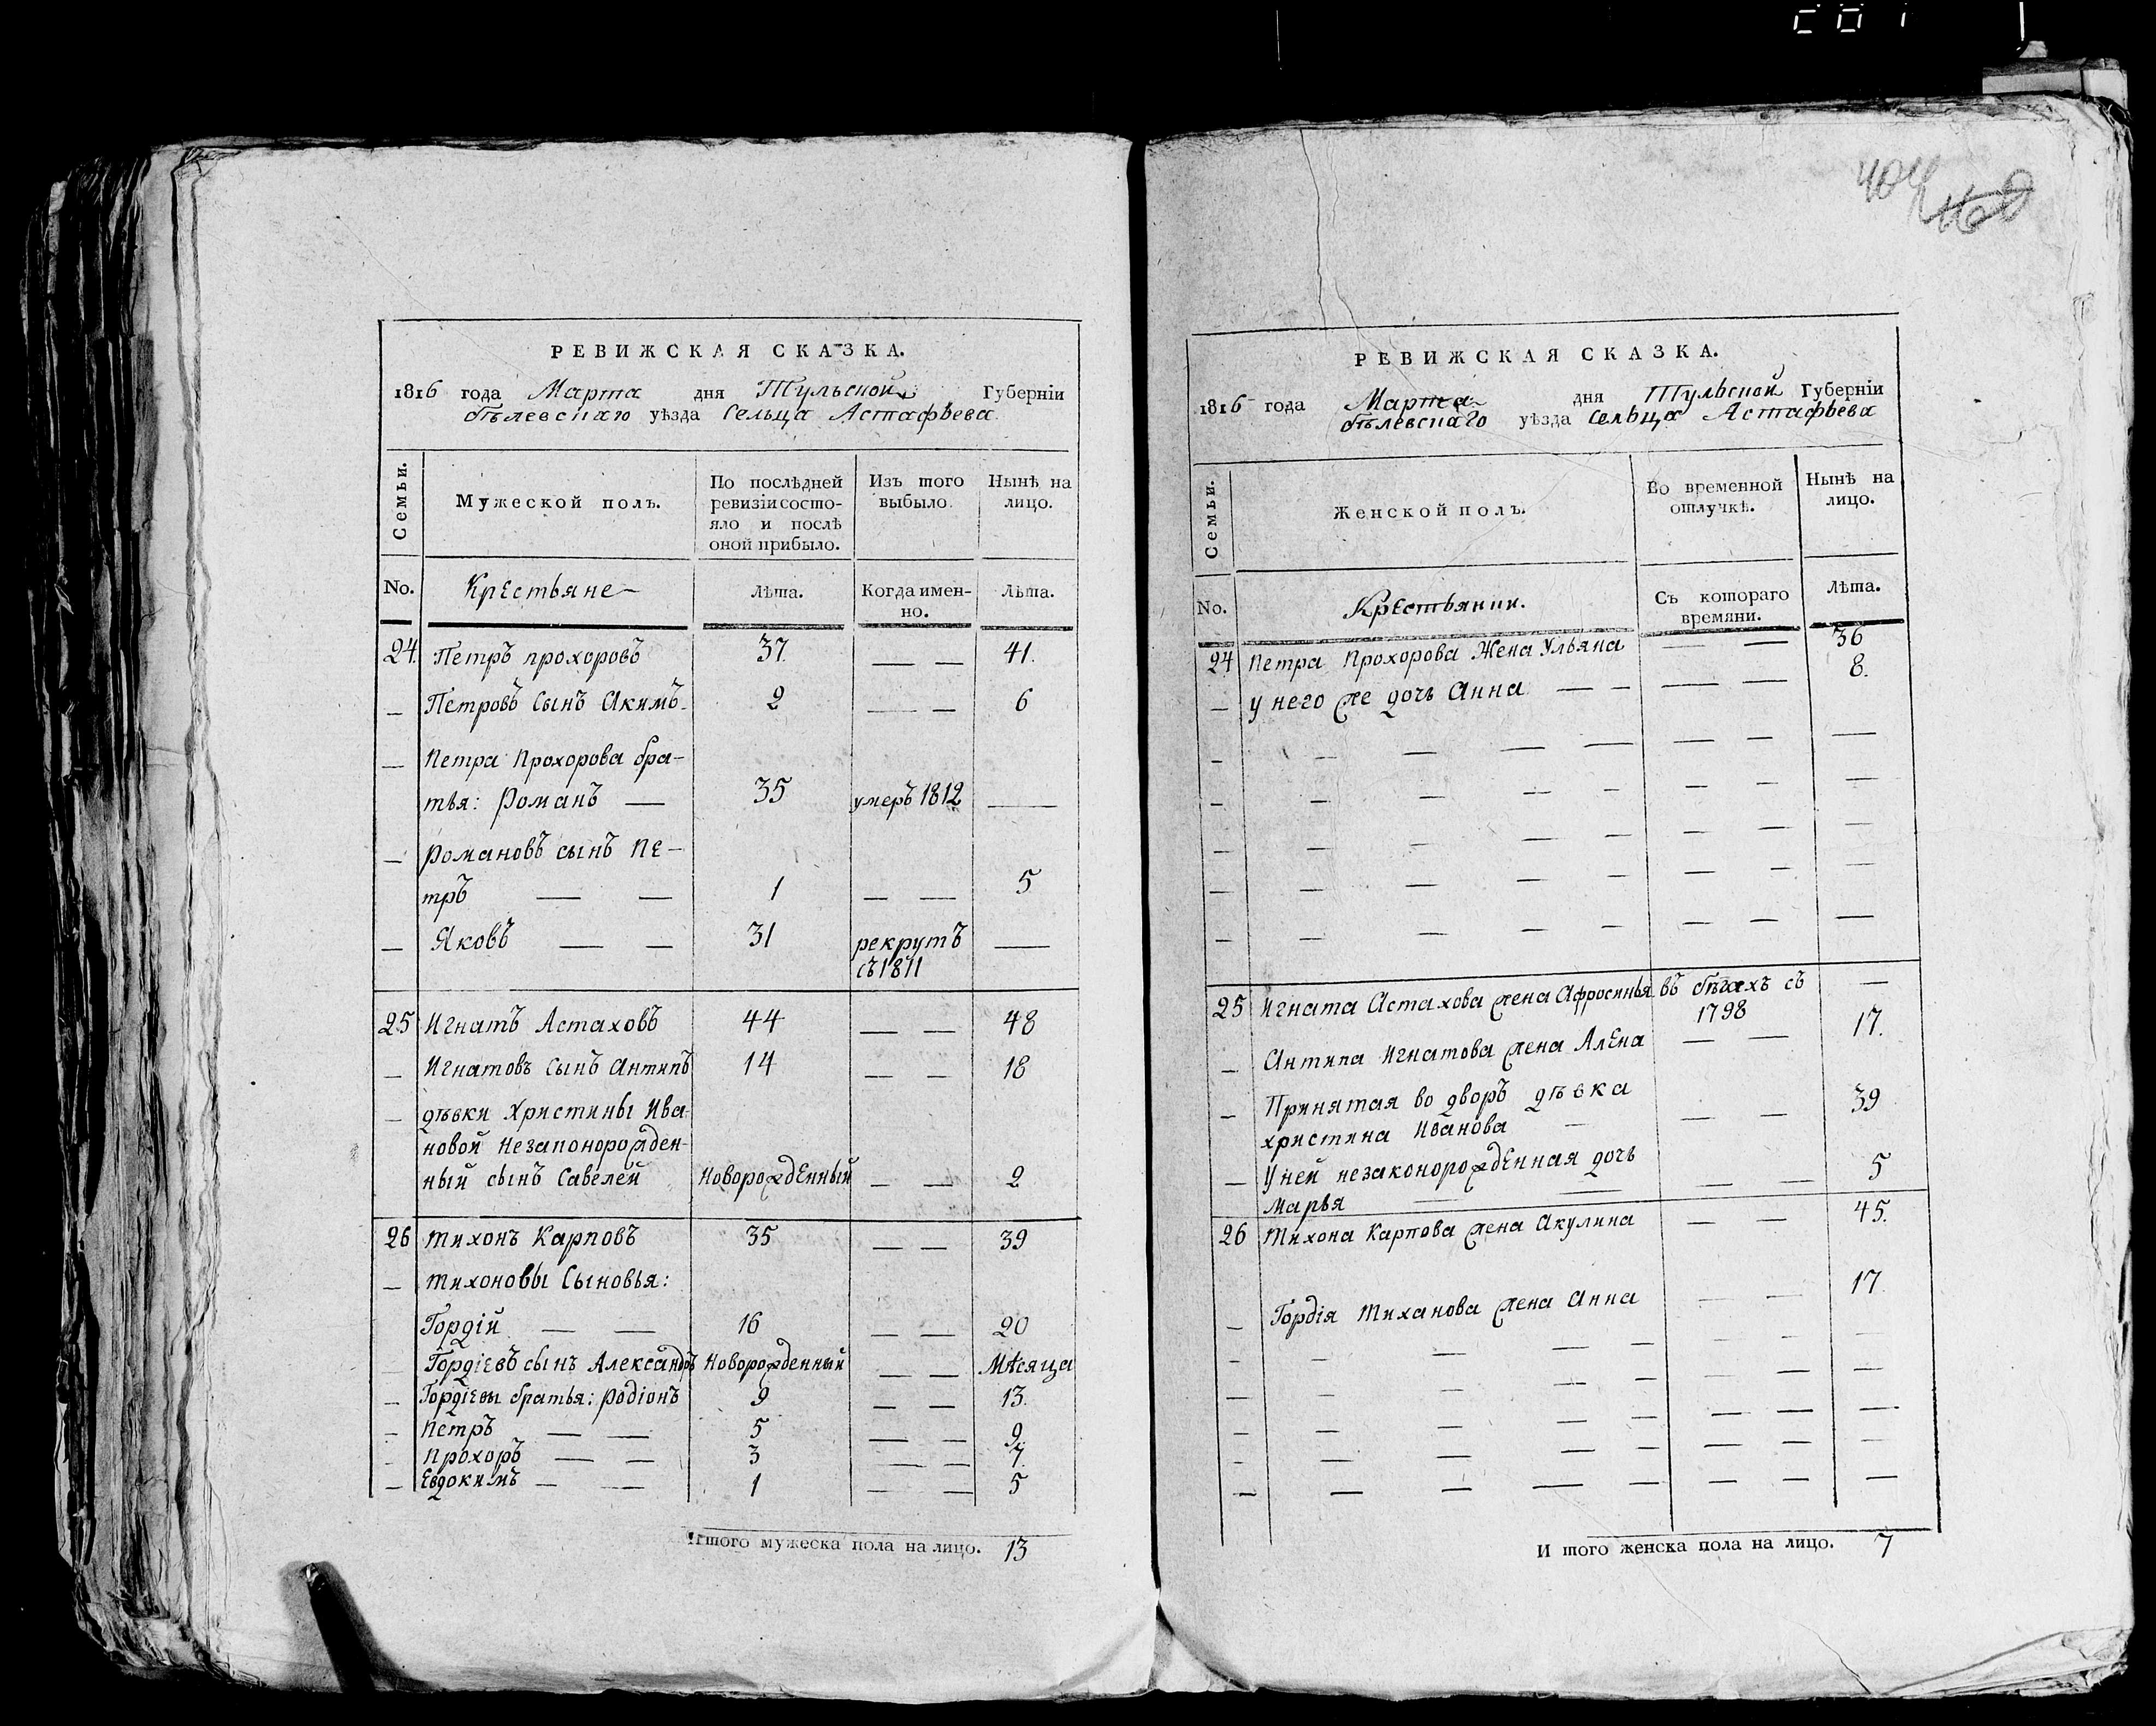 РЕВИЖСКАЯ СКАЗКА.
1816 года Марта дня Тульской Губерніи
бѣлевскаго уѣзда Сельца Астафьева
Семьи. Мужеской полъ. По послѣдней ревизіи состо-яло и послѣ оной прибыло. Изъ того выбыло. Нынѣ на лицо.
No. Крестьяне Лѣта. Когда имен-но. Лѣта.
24. Петръ прохоровъ 37. — — 41.
— Петровъ Сынъ Акимъ 2 — — 6
— Петра Прохорова бра-
тья: Романъ — 35 умеръ 1812 —
— Романовъ сынъ Пе-
тръ — — 1 — — 5
— Яковъ — — 31 рекрутъ —
съ 1811
25 Игнатъ Астаховъ 44 — — 48
— Игнатовъ Сынъ Антипъ 14 — — 18
— дѣвки Христины Ива-
новой Незаконорожден-
ный сынъ Савелей Новорожденный — — 2
26 Тихонъ Карповъ 35 — — 39
— Тихоновы Сыновья:
Гордій — — 16 — — 20
— Гордіевъ сынъ Александръ Новорожденный — — Мѣсяца
— Гордіевы братья: Родіонъ 9 — — 13.
— Петръ — — 5 — — 9.
— Прохоръ — — 3 — — 7.
— Евдокимъ — — 1 — — 5
Итого мужеска пола на лицо. 13
404
РЕВИЖСКАЯ СКАЗКА.
1816 года Марта дня Тульской Губерніи
бѣлевскаго уѣзда Сельца Астафьева
Семьи. Женской полъ. Во временной отлучкѣ. Нынѣ на лицо.
No. Крестьянки. Съ котораго времяни. Лѣта.
24 Петра Прохорова Жена Ульяна — — 36
— у него же дочь Анна — — — — 8.
25 Игната Астахова жена Афросинья въ бѣгахъ съ —
1798
— Антипа Игнатова жена Алена — — 17.
— Принятая во дворъ дѣвка
христина Иванова — — — 39
— У ней незаконорожденная дочь
Марья — — — — 5
26 Тихона Карпова жена Акулина — — 45.
— Гордія Тиханова жена Анна — — 17.
И того женска пола на лицо. 7